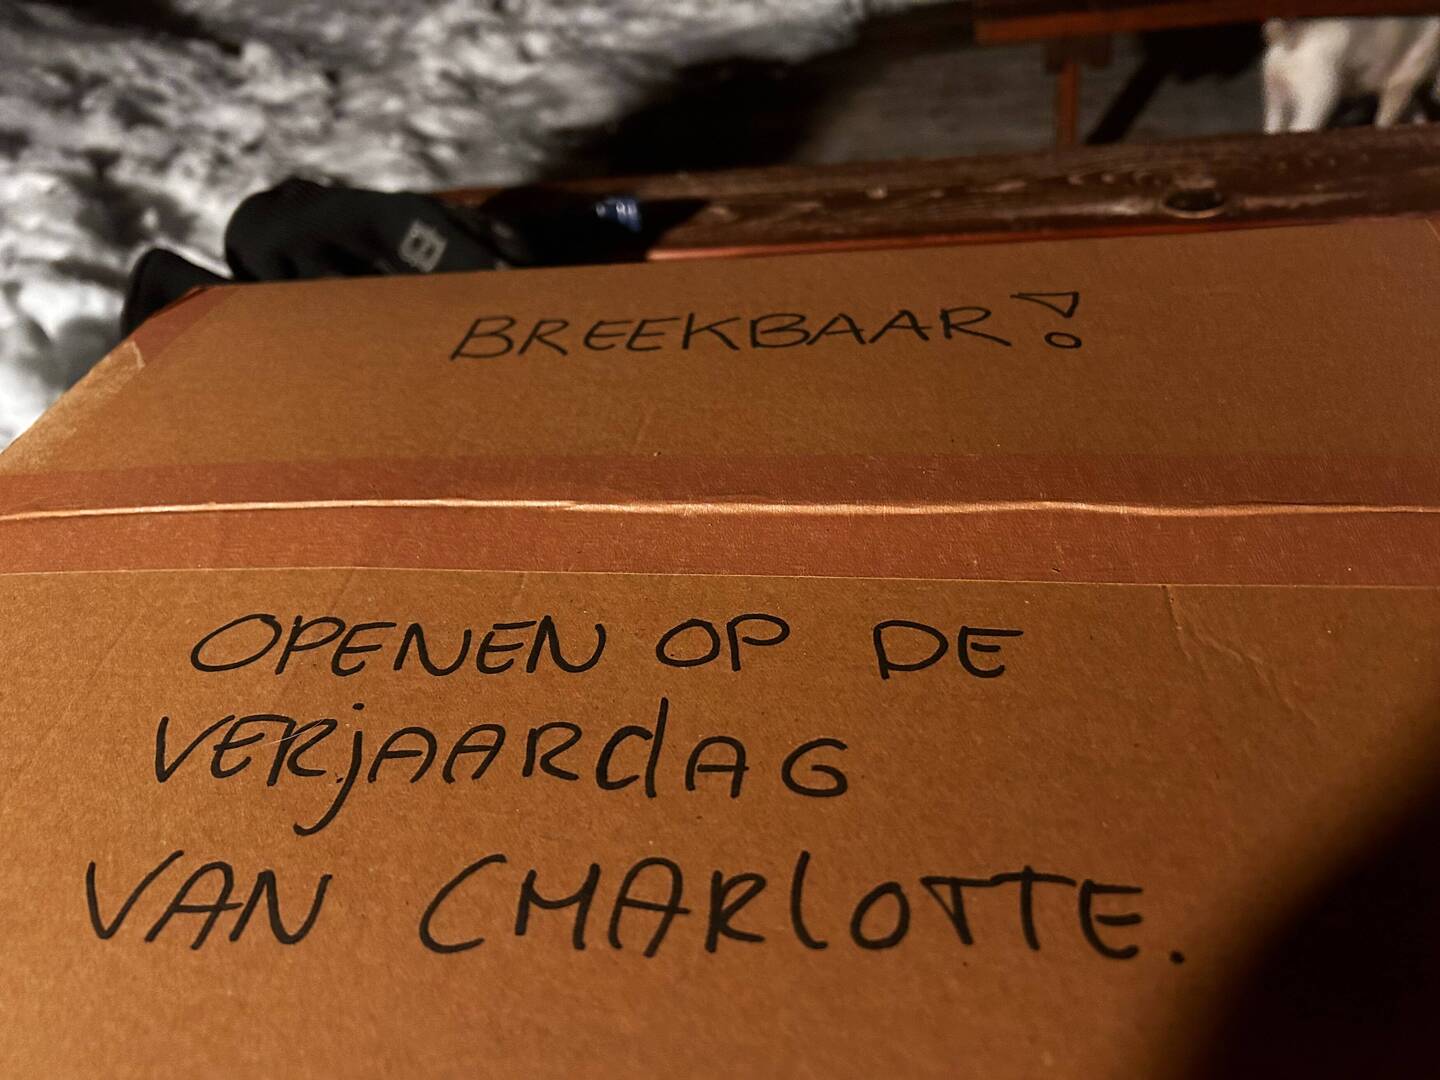 BREEKBAAR!
OPENEN OP DE
VERjAARdAG
VAN CHARlOTTE.